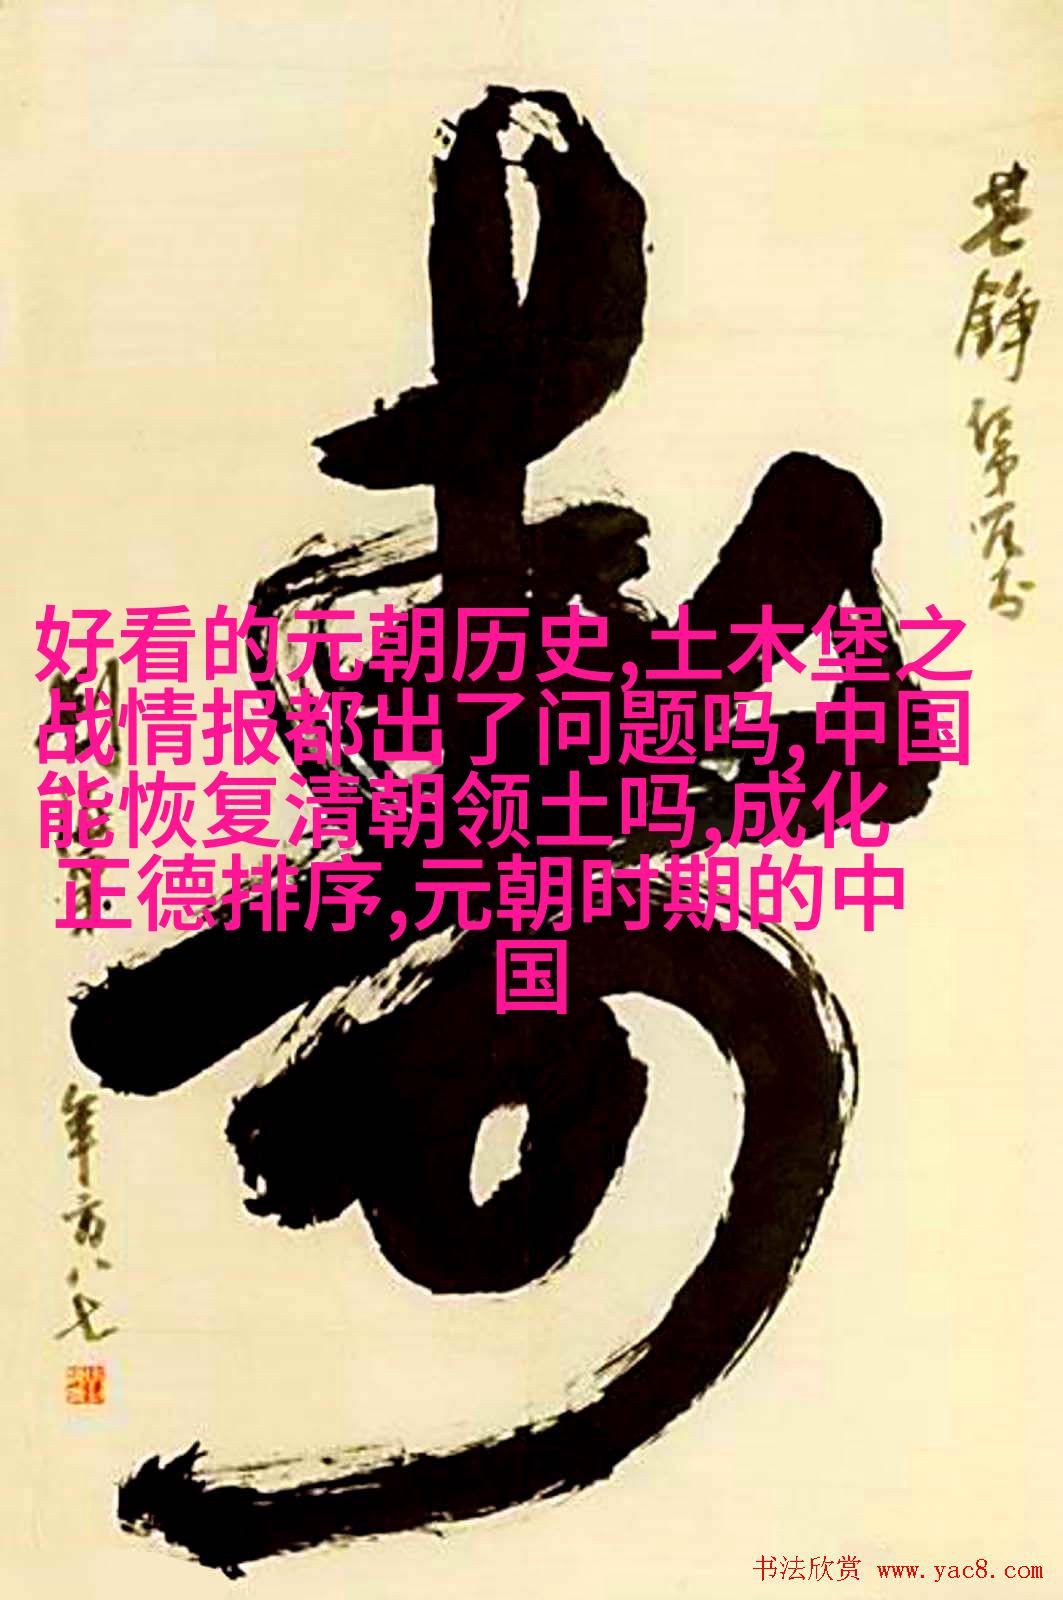 寿
其錚
年方八七
好看的元朝历史,土木堡之
战情报都出了问题吗,中国
能恢复清朝领土吗,成化
正德排序,元朝时期的中
国
书法欣赏 www.yac8.com